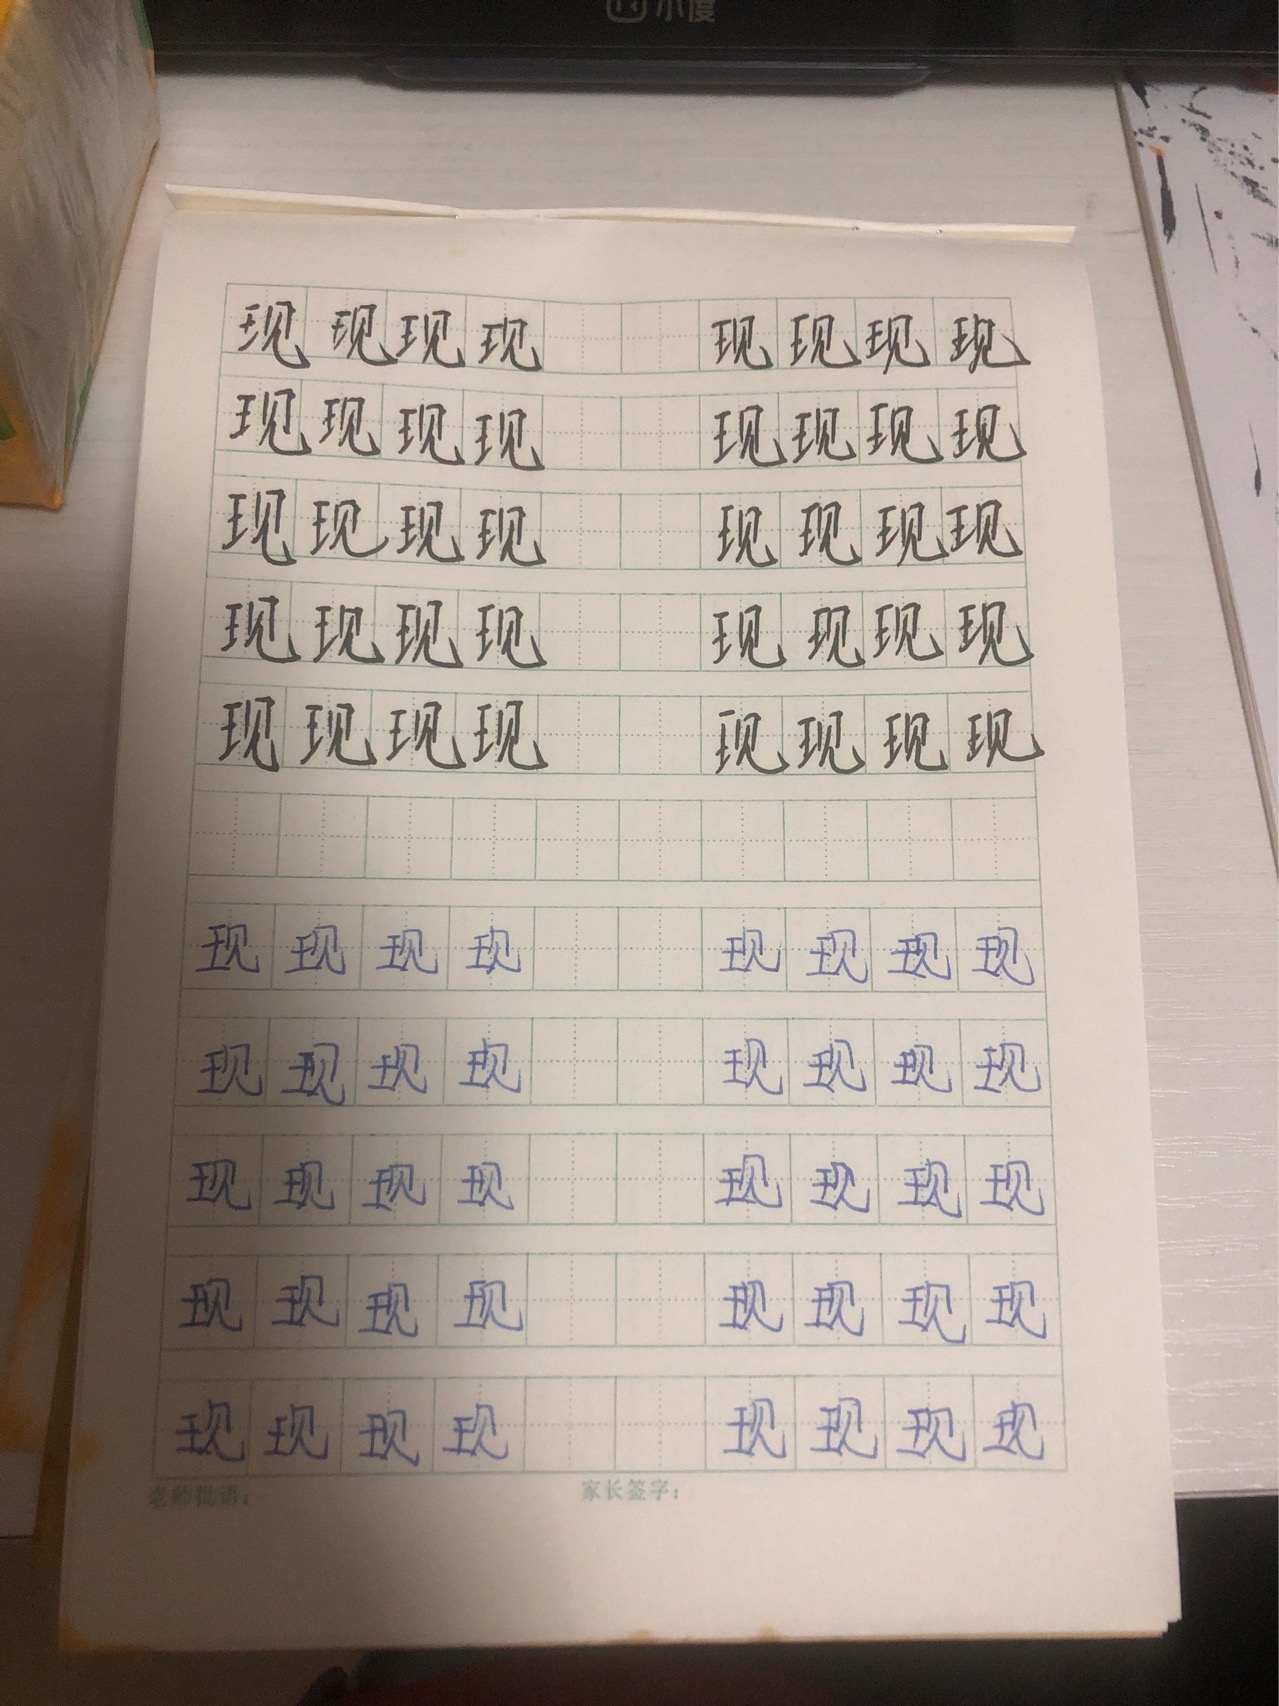 小度
现 现 现 现 现 现 现 现
现 现 现 现 现 现 现 现
现 现 现 现 现 现 现 现
现 现 现 现 现 现 现 现
现 现 现 现 现 现 现 现
现 现 现 现 现 现 现 现
现 现 现 现 现 现 现 现
现 现 现 现 现 现 现 现
现 现 现 现 现 现 现 现
现 现 现 现 现 现 现 现
老师批语： 家长签字：